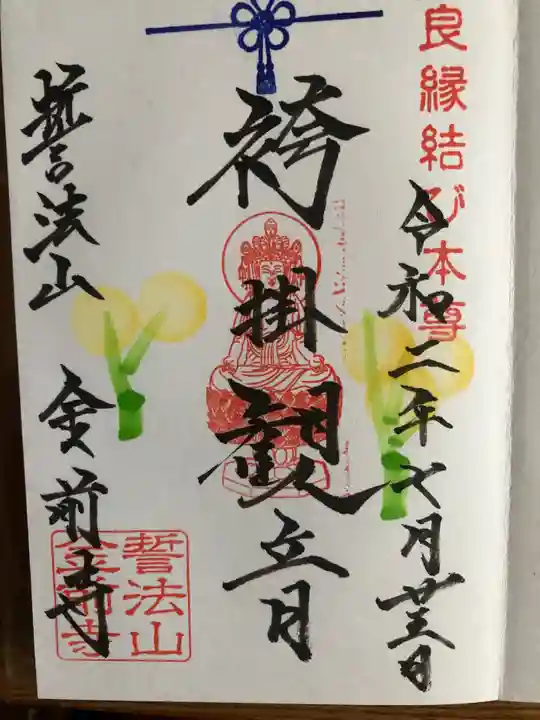 良縁結び本尊
令和二年七月廿三日
袴掛観音
誓法山 金前寺
誓法山
金前寺